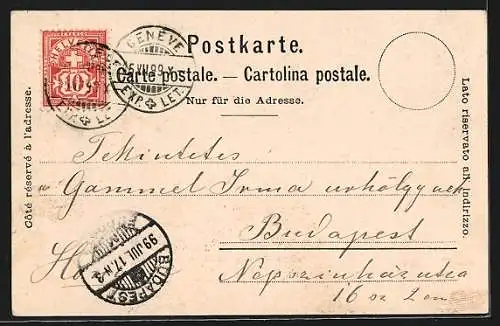 Postkarte.
Carte postale. — Cartolina postale.
Nur für die Adresse.
Côté réservé à l'adresse.
Lato riservato all' indirizzo.
HELVETIA
10
GENÈVE
EXP. LET.
Tekintetes
Gammel Irma úrhölgynek
Budapest
Népszinház utca
16 sz 2 em
BUDAPEST
99 JUL. 17.